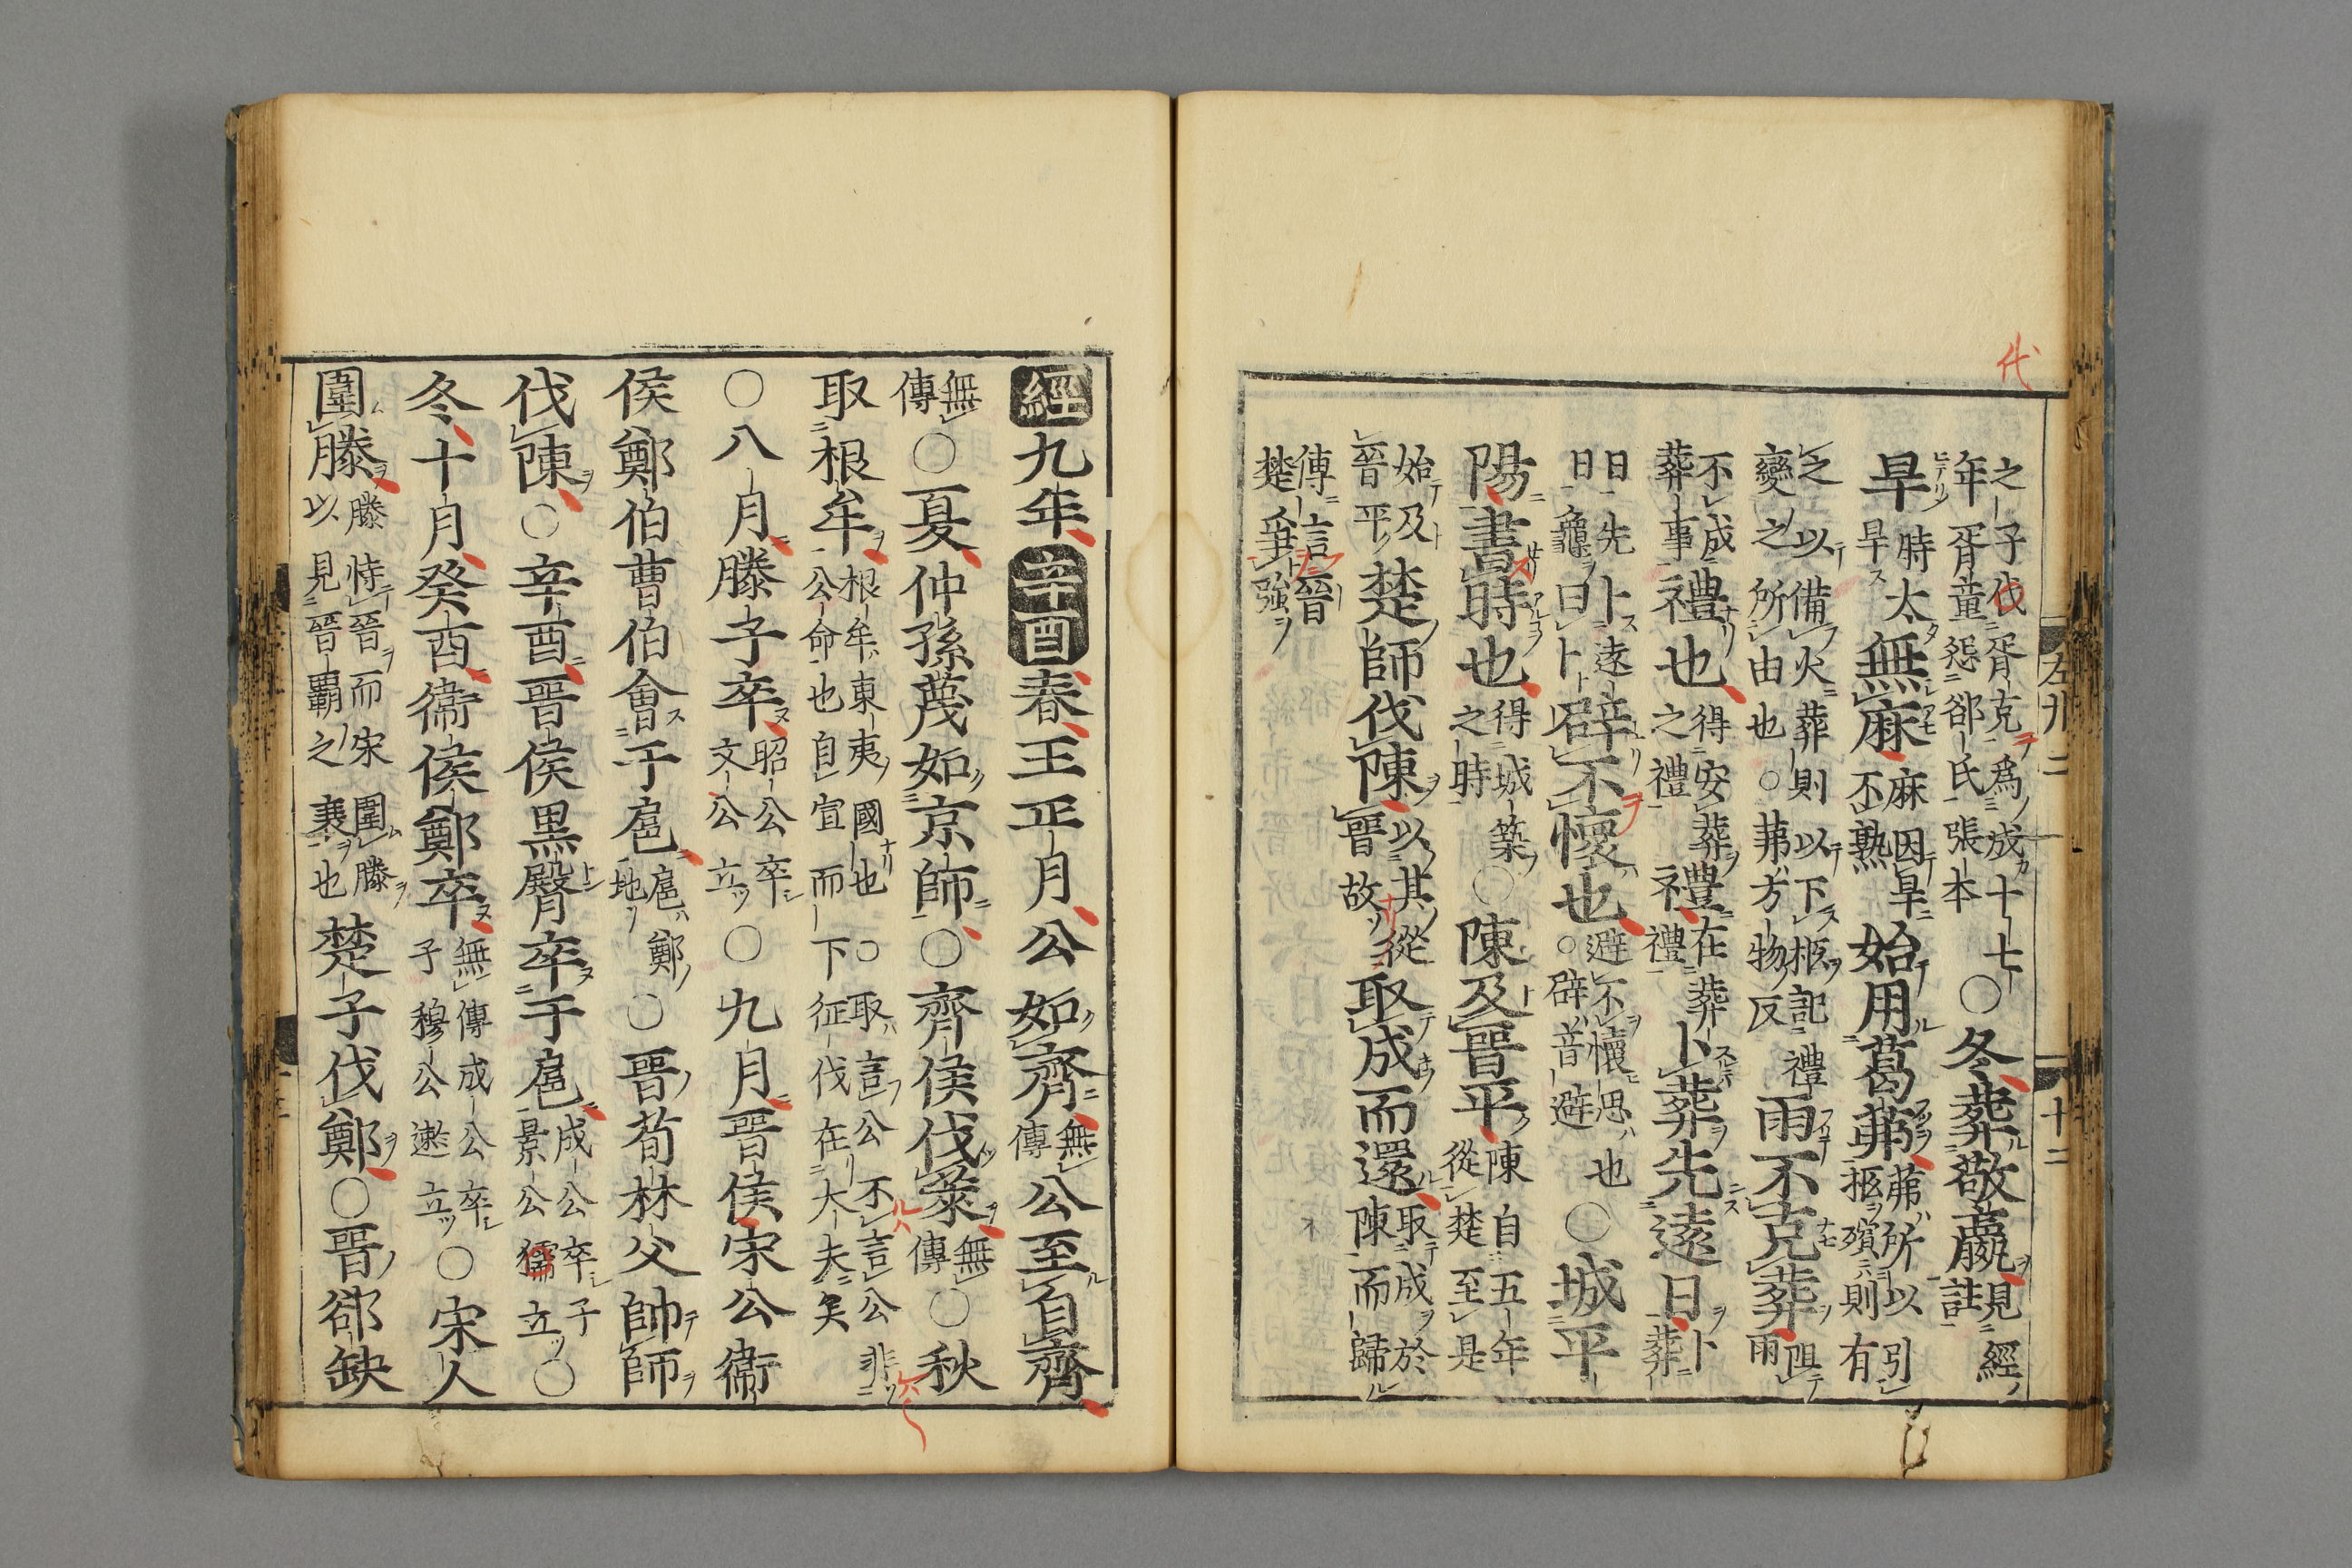 代
左卄二 十二
之子伐胥克爲成十七年胥童怨郤氏張本○冬葬敬嬴見經註
旱時太旱無麻麻因旱不熟始用葛茀茀所以引柩殯則有
之以備火葬則以下柩記禮變之所由也○茀方物反雨不克葬阻雨
不成葬事禮也得安葬之禮禮在葬禮卜葬先遠日卜葬
日先卜遠日龜曰卜辟不懷也避不懷思也○辟音避○城平
陽書時也得城築之時○陳及晉平陳自五年從楚至是
始及晉平楚師伐陳以其從晉故取成而還取成於陳而歸
傳言晉楚爭強
經九年辛酉春王正月公如齊無傳公至自齊
無傳○夏仲孫蔑如京師○齊侯伐萊無傳○秋
取根牟根牟東夷國也○取言公不言公非公命也自宣而下征伐在大夫矣
○八月滕子卒昭公卒文公立○九月晉侯宋公衞
侯鄭伯曹伯會于扈扈鄭地○晉荀林父帥師
伐陳○辛酉晉侯黑臀卒于扈成公卒子景公獳立○
冬十月癸酉衞侯鄭卒無傳成公卒子穆公遬立○宋人
圍滕滕恃晉而宋圍滕以見晉霸之衰也楚子伐鄭○晉郤缺